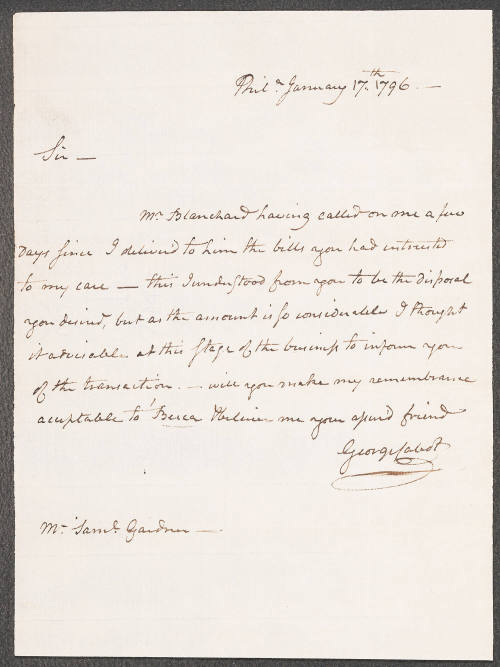 Phil.ª January 17.th 1796. —
Sir —
Mr. Blanchard having called on me a few
Days since I delivered to him the bills you had intrusted
to my care — this I understood from you to be the disposal
you desired, but as the amount is so considerable I thought
it adviseable at this stage of the business to inform you
of the transaction. — will you make my remembrance
acceptable to Becca & believe me your assured friend
George Cabot
Mr. Saml. Gardner —